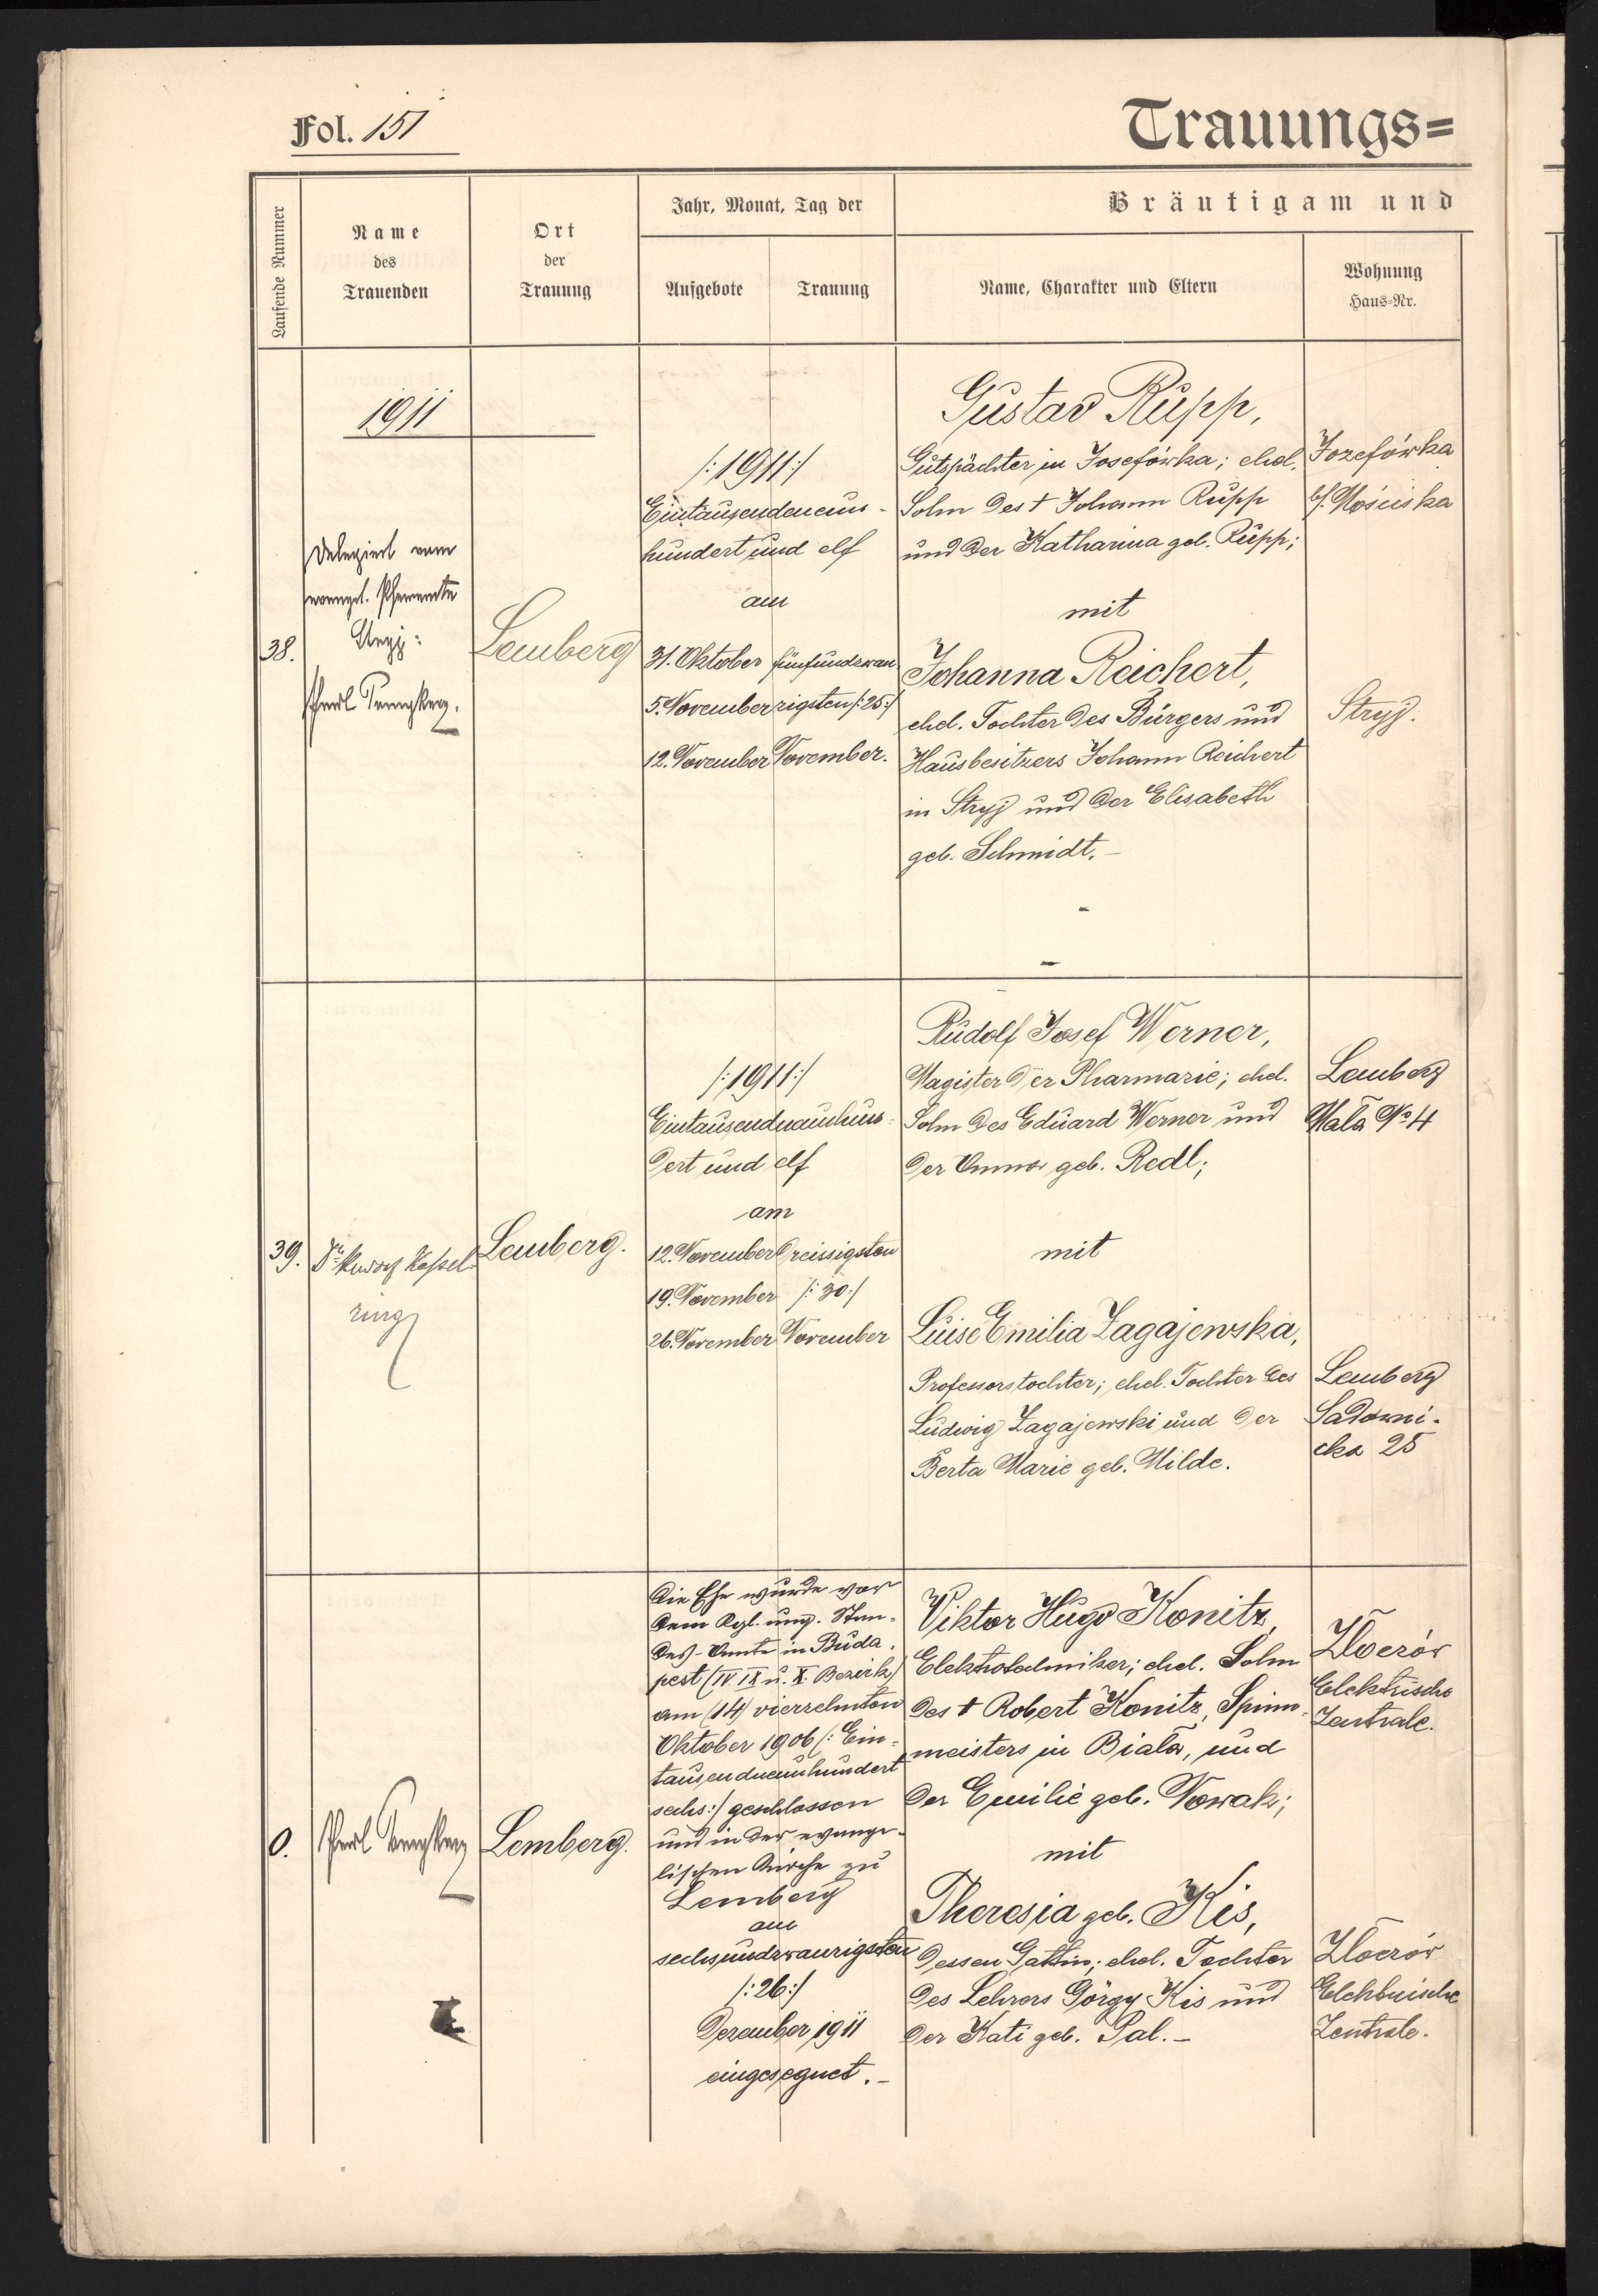 Fol. 151
Trauungs=
Laufende Nummer
Name
des
Trauenden
Ort
der
Trauung
Jahr, Monat, Tag der
Aufgebote
Trauung
Bräutigam und
Name, Charakter und Eltern
Wohnung
Haus-Nr.
1911
38.
Delegiert vom
evangel. Pfarramte
Stryj:
Lemberg
/:1911:/
Eintausendneun-
hundert und elf
am
31. Oktober fünfundzwan
5. November zigsten /:25:/
12. November November.
Gustav Rupp,
Gutspächter in Josefówka; ehel.
Sohn des † Johann Rupp
und der Katharina geb. Rupp;
mit
Johanna Reichert,
ehel. Tochter des Bürgers und
Hausbesitzers Johann Reichert
in Stryj und der Elisabeth
geb. Schmidt. –
Jozefówka
b/. Mościska
Stryj.
39.
Dr. Rudolf Kessel-
ring
Lemberg.
/:1911:/
Eintausendneunhun-
dert und elf
am
12. November dreissigsten
19. November /:30:/
26. November November
Rudolf Josef Werner,
Magister der Pharmazie; ehel.
Sohn des Eduard Werner und
der Anna geb. Redl;
mit
Luise Emilia Zagajewska,
Professorstochter; ehel. Tochter des
Ludwig Zagajewski und der
Berta Marie geb. Milde.
Lemberg
Mała No 4
Lemberg
Sadowni-
cka 25
0.
Lemberg.
Die Ehe wurde vor
dem kgl. ung. Stan-
des-Amte in Buda-
pest (IV. IX u. X. Bezirk)
am (14) vierzehnten
Oktober 1906 (: Ein-
tausendneunhundert
sechs:/ geschlossen
und in der evange-
lischen Kirche zu
Lemberg
am
sechsundzwanzigsten
/:26:/
Dezember 1911
eingesegnet. –
Viktor Hugo Konitz,
Elektrotechniker; ehel. Sohn
des † Robert Konitz, Spinn-
meisters in Biala, und
der Emilie geb. Nowak;
mit
Theresia geb. Kis,
dessen Gattin; ehel. Tochter
des Lehrers Görgy Kis und
der Kati geb. Pal. –
Złoczów
Elektrische
Zentrale.
Złoczów
Elektrische
Zentrale.